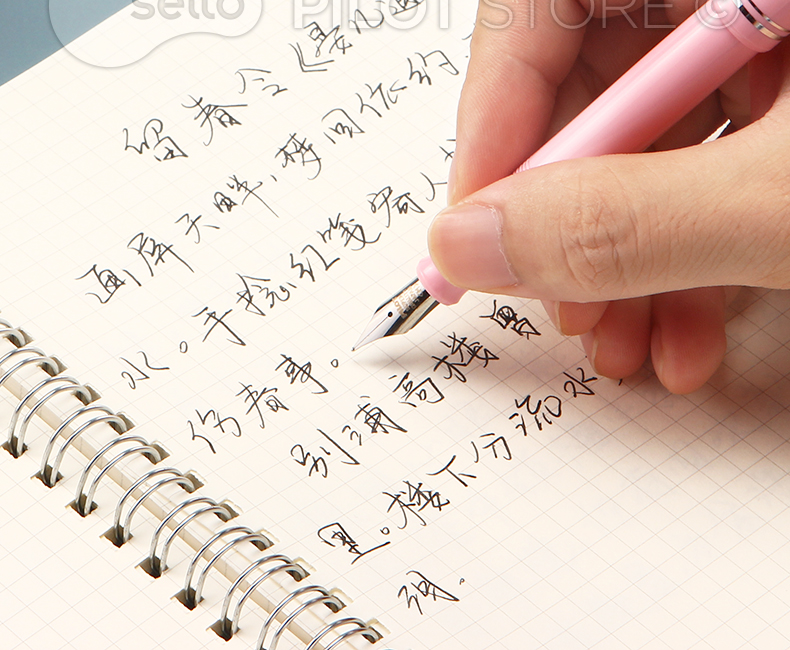 sello PILOT STORE ©
留春令《晏几道
画屏天畔,梦回依约
水。手捻红笺寄人
伤春事。
别浦高楼曾
里。楼下分流水
泪。